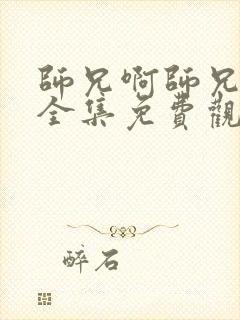 師兄啊師兄
全集免費觀
醉石